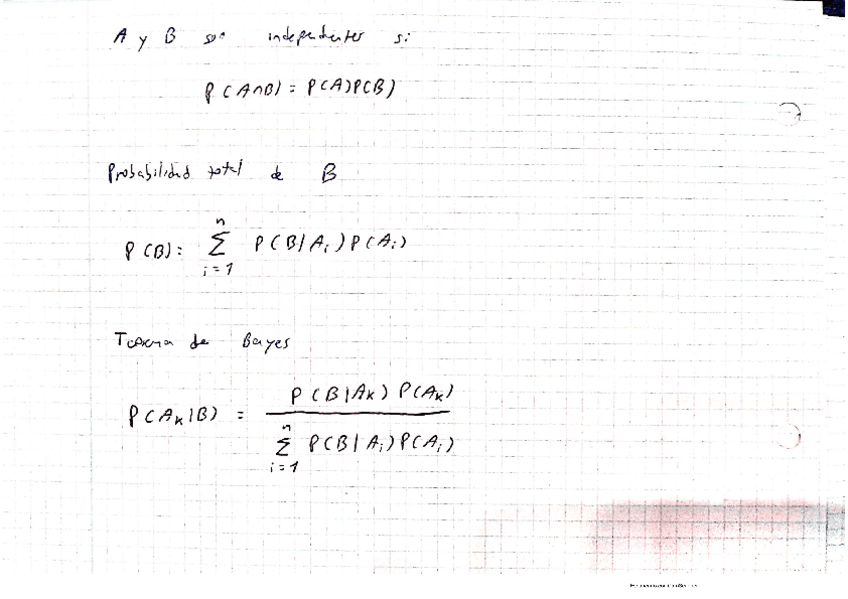 A y B son independientes si
P(A∩B) = P(A)P(B)
Probabilidad total de B
P(B) = ∑ⁿᵢ₌₁ P(B|Aᵢ)P(Aᵢ)
Teorema de Bayes
P(Aₖ|B) = P(B|Aₖ)P(Aₖ) / ∑ⁿᵢ₌₁ P(B|Aᵢ)P(Aᵢ)